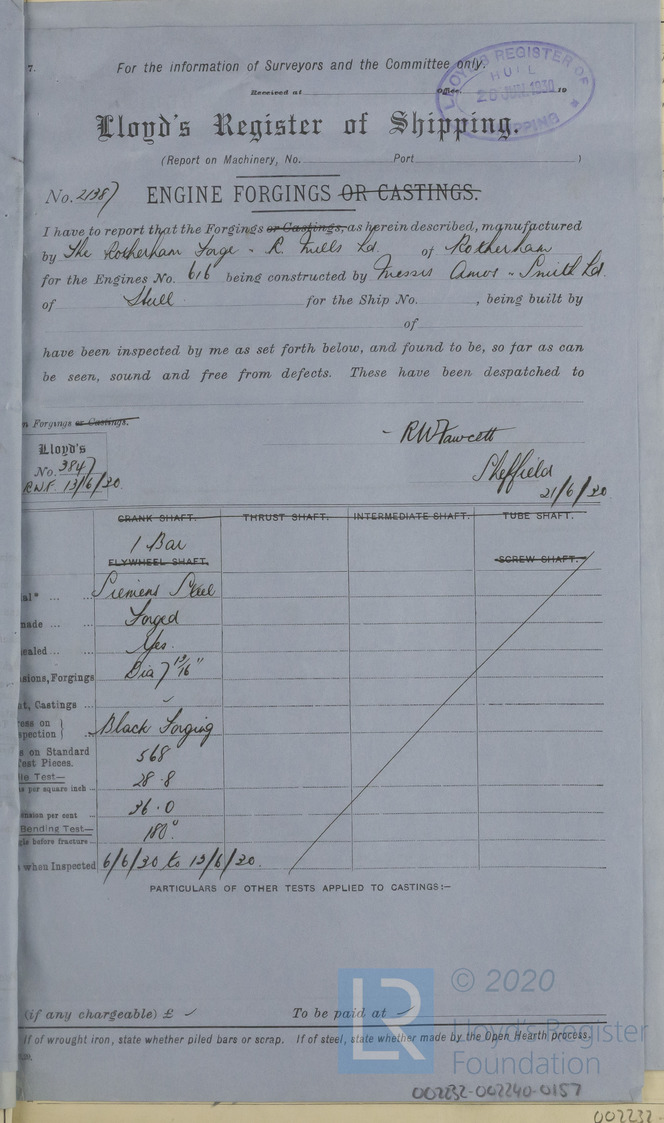 7.
For the information of Surveyors and the Committee only.
Received at Office, 19
LLOYD'S REGISTER OF SHIPPING
HULL
JUN. 1930
Lloyd's Register of Shipping.
(Report on Machinery, No. Port )
No. 21387 ENGINE FORGINGS OR CASTINGS.
I have to report that the Forgings or Castings, as herein described, manufactured
by The Rotherham Forge & R. Mills Ld. of Rotherham
for the Engines No. 616 being constructed by Messrs Amos & Smith Ld.
of Hull for the Ship No. , being built by
of
have been inspected by me as set forth below, and found to be, so far as can
be seen, sound and free from defects. These have been despatched to
n Forgings or Castings.
R W Fawcett
Lloyd's
No. 3847
R.W.F. 13/6/30.
Sheffield
21/6/30
CRANK SHAFT. THRUST SHAFT. INTERMEDIATE SHAFT. TUBE SHAFT.
1 Bar
FLYWHEEL SHAFT. SCREW SHAFT.
ial* ... ... Siemens Steel
made ... ... Forged
ealed ... ... Yes.
sions, Forgings Dia 7 13/16"
nt, Castings ...
ross on
spection } Black Forging
s on Standard
Test Pieces. 568
le Test—
s per square inch .. 28.8
ension per cent ... 36.0
Bending Test—
gle before fracture ... 180°
when Inspected 6/6/30 to 13/6/30.
PARTICULARS OF OTHER TESTS APPLIED TO CASTINGS:—
(if any chargeable) £ To be paid at
If of wrought iron, state whether piled bars or scrap. If of steel, state whether made by the Open Hearth process.
LR
© 2020
Lloyd's Register
Foundation
002232-002240-0157
002232-